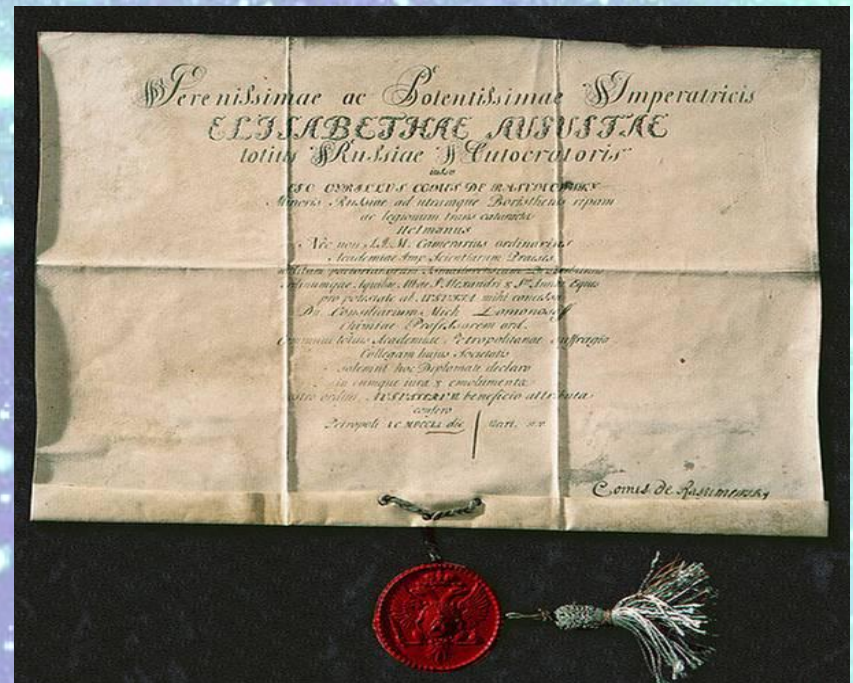 Serenissimae ac Potentissimae Imperatricis
ELISABETHAE AUGUSTAE
totius Russiae Autocratoris
iussu
CYRILLUS COMES DE RASUMOWSKY
Minoris Russiae ad utramque Boristhenis ripam
ac legionum trans cataracta
Hetmanus
Nec non S.I.M. Camerarius ordinarius
Academiae Imp. Scientiarum Praeses
Aquilae Albae S. Alexandri & Stae Annae Eques
pro potestate ab AUGUSTA mihi concessa
Dn. Consiliarium Mich. Lomonosoff
Chimiae Professorem ord.
communi totius Academiae Petropolitanae suffragio
Collegam hujus Societatis
solemni hoc Diplomate declaro
in eumque iura & emolumenta
ordini AUGUSTARUM beneficio attributa
confero
Petropoli die
Comes de Rasumowsky